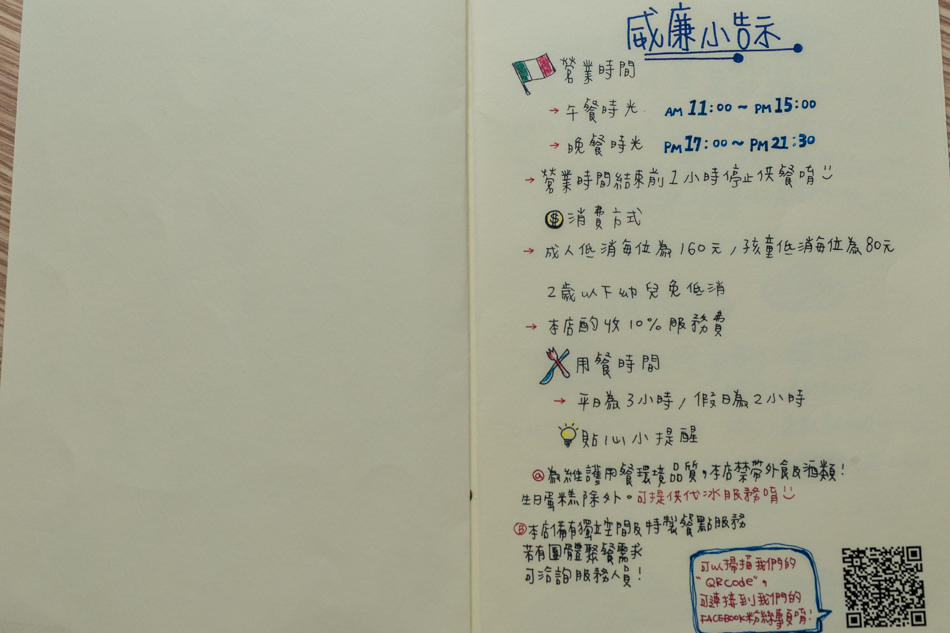 威廉小告示
營業時間
→ 午餐時光 AM 11:00 ~ PM 15:00
→ 晚餐時光 PM 17:00 ~ PM 21:30
→ 營業時間結束前1小時停止供餐唷
$ 消費方式
→ 成人低消每位為160元/孩童低消每位為80元
2歲以下幼兒免低消
→ 本店酌收10%服務費
用餐時間
→ 平日為3小時/假日為2小時
貼心小提醒
ⓐ為維護用餐環境品質,本店禁帶外食及酒類!
生日蛋糕除外。可提供代冰服務唷
Ⓑ本店備有獨立空間及特製餐點服務
若有團體聚餐需求
可洽詢服務人員!
可以掃描我們的
"QRcode",
可連接到我們的
FACEBOOK粉絲專頁唷!